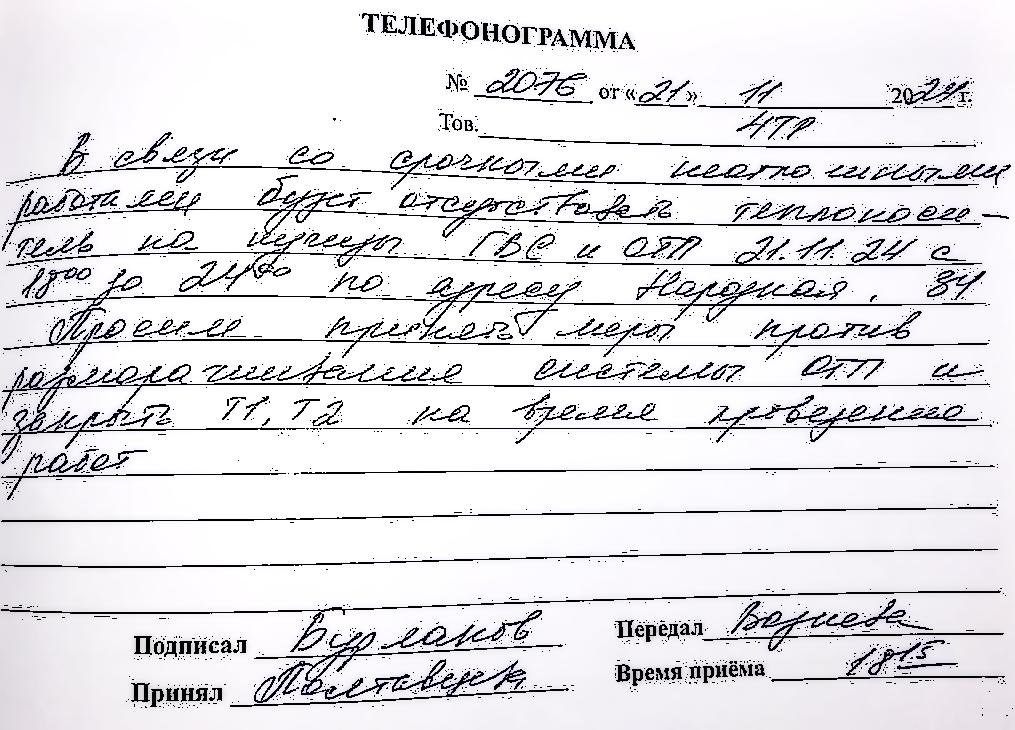 ТЕЛЕФОНОГРАММА
№ 2076 от «21» 11 2024 г.
Тов. ЧТР
В связи со срочными неотложными
работами будет отсутствовать теплоноси-
тель на нужды ГВС и ОТП 21.11.24 с
18⁰⁰ до 24⁰⁰ по адресу Народная, 34
Просим принять меры против
размораживания системы ОТП и
закрыть Т1, Т2 на время проведение
работ
Подписал Бурлаков Передал
Принял Время приёма 18¹⁵